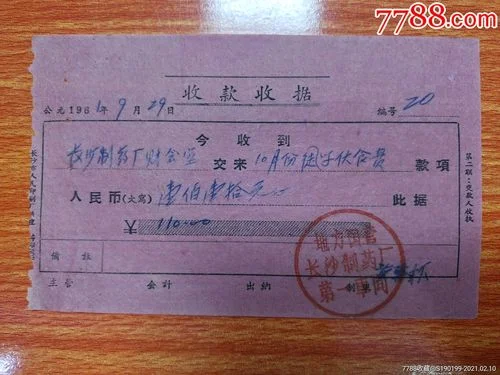 7788.com
收款收据
公元1961年9月29日
编号 20
今收到
长沙制药厂财会室 交来 10月份团子伙食费 款项
人民币(大写) 壹佰壹拾元 此据
¥ 110.00
备注
主管 会计 出纳 制单
地方国营
长沙制药厂
第一车间
第二联：交款人收执
7788收藏@S190199-2021.02.10